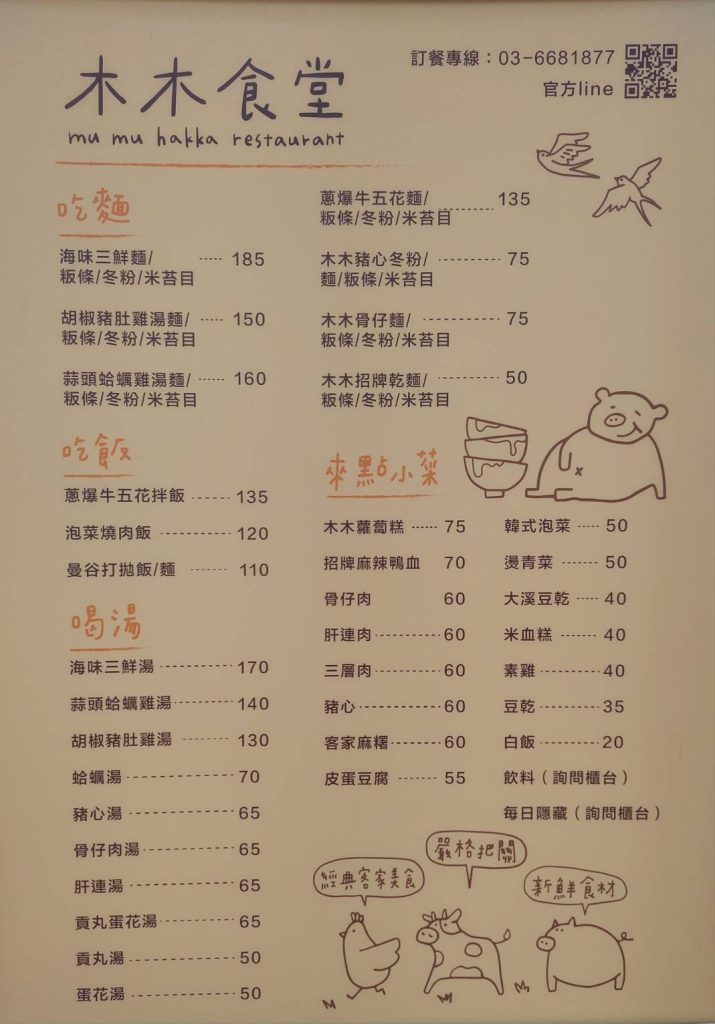 木木食堂
mu mu hakka restaurant
訂餐專線：03-6681877
官方line
吃麵
海味三鮮麵/ ----- 185
粄條/冬粉/米苔目
胡椒豬肚雞湯麵/ ----- 150
粄條/冬粉/米苔目
蒜頭蛤蠣雞湯麵/ ----- 160
粄條/冬粉/米苔目
蔥爆牛五花麵/ ---------- 135
粄條/冬粉/米苔目
木木豬心冬粉/ ---------- 75
麵/粄條/米苔目
木木骨仔麵/ ------------ 75
粄條/冬粉/米苔目
木木招牌乾麵/ ---------- 50
粄條/冬粉/米苔目
吃飯
蔥爆牛五花拌飯 ------ 135
泡菜燒肉飯 ----------- 120
曼谷打拋飯/麵 ------ 110
喝湯
海味三鮮湯 ----------- 170
蒜頭蛤蠣雞湯 --------- 140
胡椒豬肚雞湯 ------- 130
蛤蠣湯 ---------------- 70
豬心湯 ---------------- 65
骨仔肉湯 -------------- 65
肝連湯 ---------------- 65
貢丸蛋花湯 ------------ 65
貢丸湯 ---------------- 50
蛋花湯 ---------------- 50
來點小菜
木木蘿蔔糕 ------ 75
招牌麻辣鴨血 70
骨仔肉 60
肝連肉 ----------- 60
三層肉 ----------- 60
豬心 -------------- 60
客家麻糬 --------- 60
皮蛋豆腐 ------ 55
韓式泡菜 ---- 50
燙青菜 ------- 50
大溪豆乾 ---- 40
米血糕 ------- 40
素雞 ----------- 40
豆乾 ----------- 35
白飯 ----------- 20
飲料（詢問櫃台）
每日隱藏（詢問櫃台）
經典客家美食
嚴格把關
新鮮食材